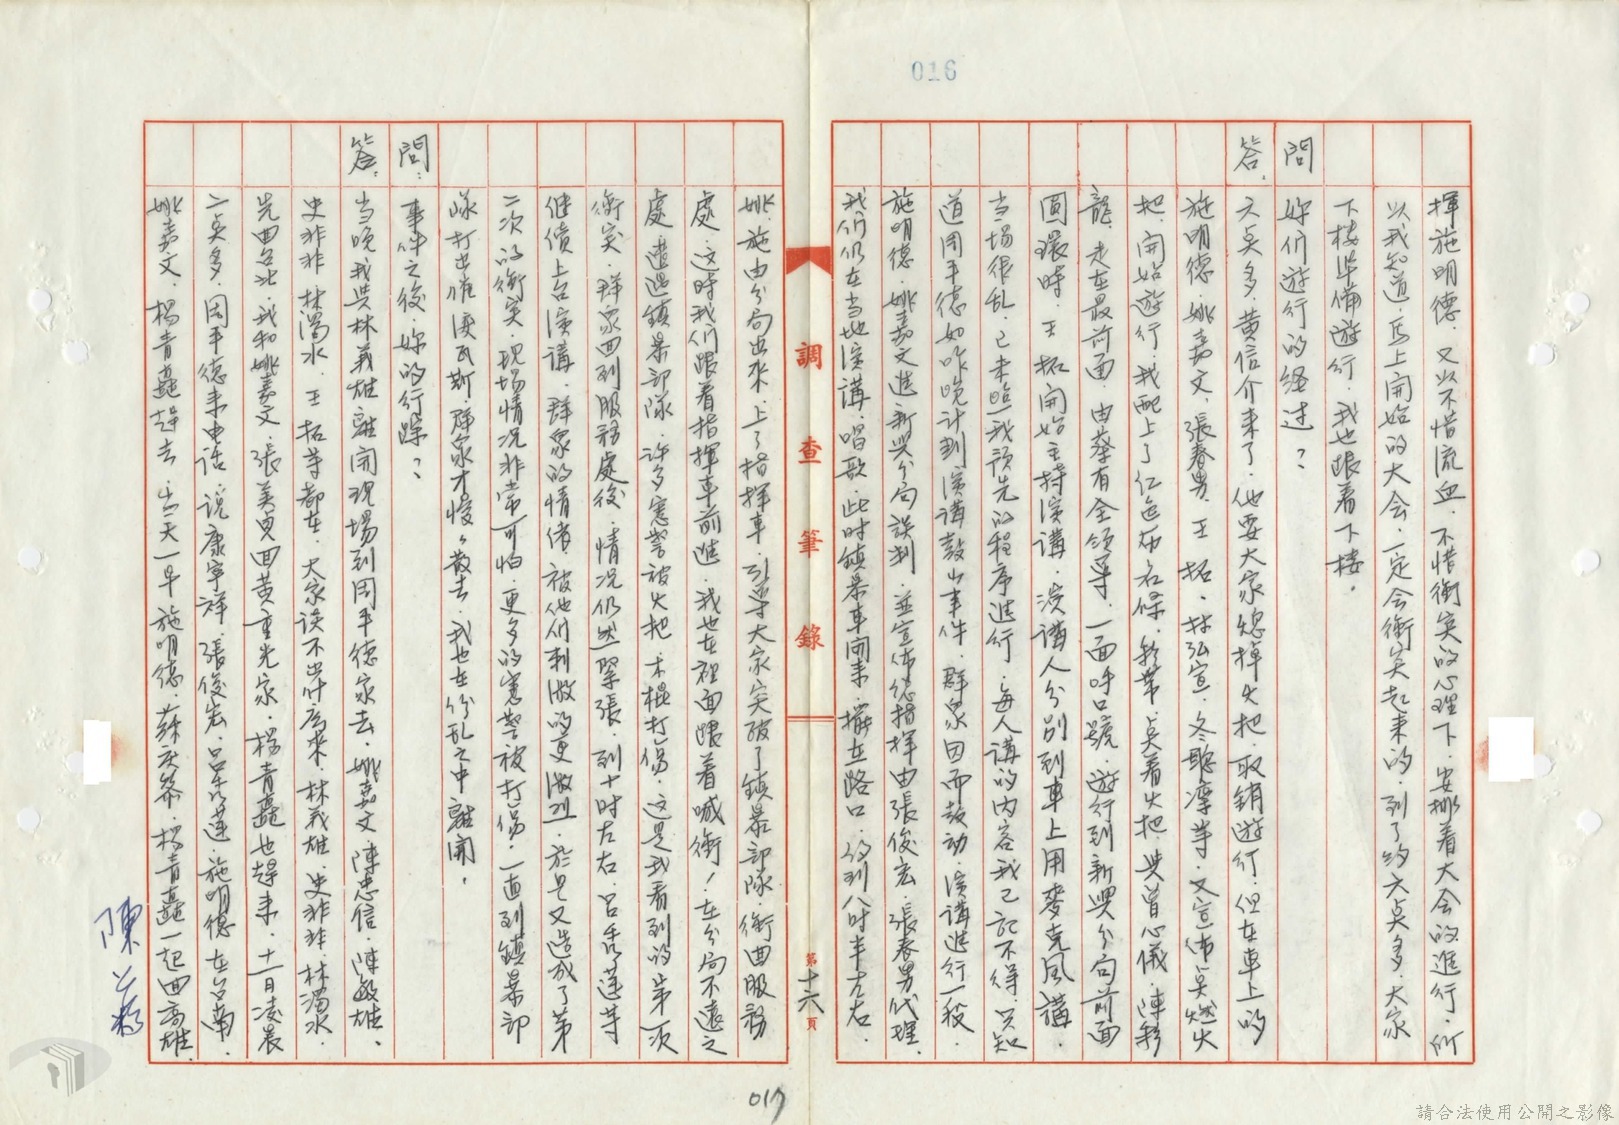 016
揮施明德，又以不惜流血、不惜衝突的心理下，安排着大会的進行，所
以我知道，馬上開始的大会，一定会衝突起来的，到了約六点多，大家
下樓準備遊行，我也跟着下樓。
問 妳们遊行的经过？
答：六点多，黄信介来了，他要大家熄掉火把，取銷遊行，但在車上的
施明德、姚嘉文、張春男、王拓、林弘宣、冬聪凜等，又宣佈点燃火
把，開始遊行，我配上了仁色布名條，我第一点着火把，與曾心儀、陳彩
龍，走在最前面，由蔡有全領导，一面呼口號，遊行到新興分局前面
圓環時，王拓開始主持演講，演講人分别到車上用麥克風講，
当場很乱，已未臨我預先的程序進行，每人講的内容我已記不得，只知
道周平德如昨晚计劃演講鼓山事件，群衆因而鼓动，演講進行一段，
施明德、姚嘉文進新興分局談判，並宣佈總指揮由張俊宏、張春男代理，
我们仍在当地演講、唱歌，此时鎮暴車開来，擺在路口，約到八时半左右，
調查筆錄
第十六頁
姚、施由分局出来，上了指揮車，引导大家突破了鎮暴部隊，衝回服務
處，这时我们跟着指揮車前進，我也在裡面跟着喊衝！在分局不遠之
處，遭遇鎮暴部隊，許多憲警被火把、木棍打傷，这是我看到的第一次
衝突，群衆回到服務處後，情況仍然緊張，到十时左右，呂秀蓮等
继續上台演講，群衆的情绪被他们刺激的更激烈，於是又造成了第
二次的衝突，現場情況非常可怕，更多的憲警被打傷，一直到鎮暴部
隊打出催淚瓦斯，群衆才慢慢散去，我也在紛乱之中離開，
問：事件之後，妳的行踪？
答：当晚，我與林義雄離開現場到周平德家去，姚嘉文、陳忠信、陳敏雄、
史非非、林濁水、王拓等都在，大家談不出什么来，林義雄、史非非、林濁水、
先回台北，我和姚嘉文、張美貞回黄重光家，楊青矗也趕来，十一日凌晨
二点多，周平德来电话，说康寧祥、張俊宏、呂秀蓮、施明德在台南，
姚嘉文、楊青矗趕去，当天一早施明德、蘇庆黎、楊青矗一起回高雄，
017
請合法使用公開之影像